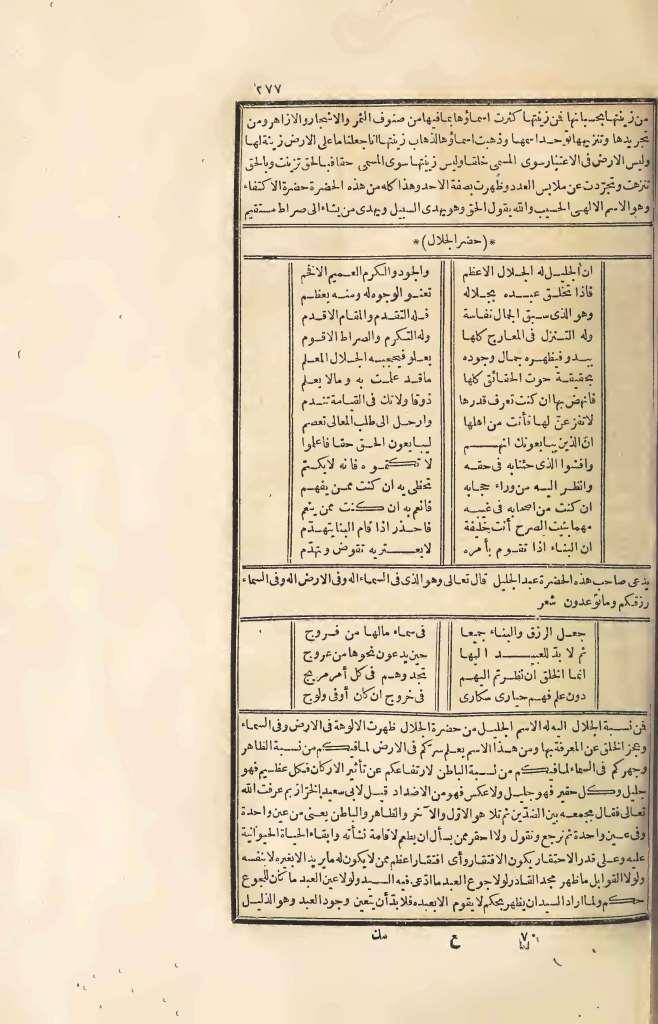 ٢٧٧
من زينتها بحسبانها فمن زينتها كثرت اسماؤها بما فيها من صنوف الثمر والاشجار والازاهر ومن
تجريدها وتنزيهها توحد اسمها وذهبت اسماؤها لذهاب زينتها انا جعلنا ما على الارض زينة لها
وليس الارض فى الاعتبار سوى المسمى خلقا وليس زينتها سوى المسمى حقا فبالحق تزينت وبالحق
تنزهت وتجردت عن ملابس العدد وظهرت بصفة الاحد وهذا كله من هذه الحضرة حضرة الاكتفاء
وهو الاسم الالهى الحسيب والله يقول الحق وهو يهدى السبيل ويهدى من يشاء الى صراط مستقيم
* (حضر الجلال) *
ان الجليل له الجلال الاعظم والجود والكرم العميم الافخم
فاذا تخلق عبده بجلاله تعنو الوجوه له ومنه يعظم
وهو الذى سبق الجمال نفاسة فله التقدم والمقام الاقدم
وله التنزل فى المعارج كلها وله التكرم والصراط الاقوم
يبدو فيظهره جمال وجوده يعلو فيحجبه الجلال المعلم
بحقيقة حوت الحقائق كلها ما قد علمت به وما لا يعلم
فانهض بها ان كنت تعرف قدرها ذوقا ولا تك فى القيامة تندم
لا تفزعن لها فأنت من اهلها وارحل الى طلب المعالى تعصم
ان الذين يبايعونك انهم ليبايعون الحق حقا فاعلموا
وافشوا الذى جئنا به فى حقه لا تكتموه فانه لا يكتم
وانظر اليه من وراء حجابه تحظى به ان كنت ممن يفهم
ان كنت من اصحابه فى غيبه فانعم به ان كنت ممن ينعم
مهما بنيت الصرح أنت خليفة فاحذر اذا قام البنا يتهدم
ان البناء اذا تقوم بأمره لا يعتريه تقوض وتهدم
يدعى صاحب هذه الحضرة عبد الجليل قال تعالى وهو الذى فى السماء اله وفى الارض اله وفى السماء
رزقكم وما توعدون شعر
جعل الرزق والبناء جميعا فى سماء مالها من فروج
ثم لا بد للعبيد اليها حين يدعون نحوها من عروج
انما الخلق ان نظرتم اليهم تجدوهم فى كل أمر مريج
دون علم فهم حيارى سكارى فى خروج ان كان أو فى ولوج
فمن نسبة الجلال اليه له الاسم الجليل من حضرة الجلال ظهرت الالوهة فى الارض وفى السماء
وعجز الخلق عن المعرفة بها ومن هذا الاسم يعلم سركم فى الارض لما فيكم من نسبة الظاهر
وجهركم فى السماء لما فيكم من نسبة الباطن لارتفاعكم عن تأثير الاركان فكل عظيم فهو
جليل وكل حقير فهو جليل ولا عكس فهو من الاضداد قيل لابى سعيد الخراز بم عرفت الله
تعالى فقال بجمعه بين الضدين ثم تلا هو الاول والآخر والظاهر والباطن يعنى من عين واحدة
وفى عين واحدة ثم نرجع ونقول ولا احقر ممن يسأل ان يطعم لاقامة نشأته وابقاء الحياة الحيوانية
عليه وعلى قدر الاحتقار يكون الافتقار وأى افتقار اعظم ممن لا يكون له ما يريد الا بغيره لا بنفسه
ولولا القوابل ما ظهر مجد القادر لولا جوع العبد ما ادعى فيه السيد ولولا عين العبد ما كان للجوع
حكم ولما اراد السيد ان يظهر بحكم لا يقوم الا بعبده فلا بد أن يتعين وجود العبد وهو الذليل
٧٠ ع مك